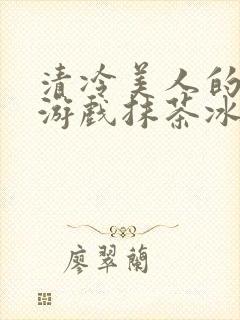 清冷美人的
游戏抹茶冰
廖翠蘭